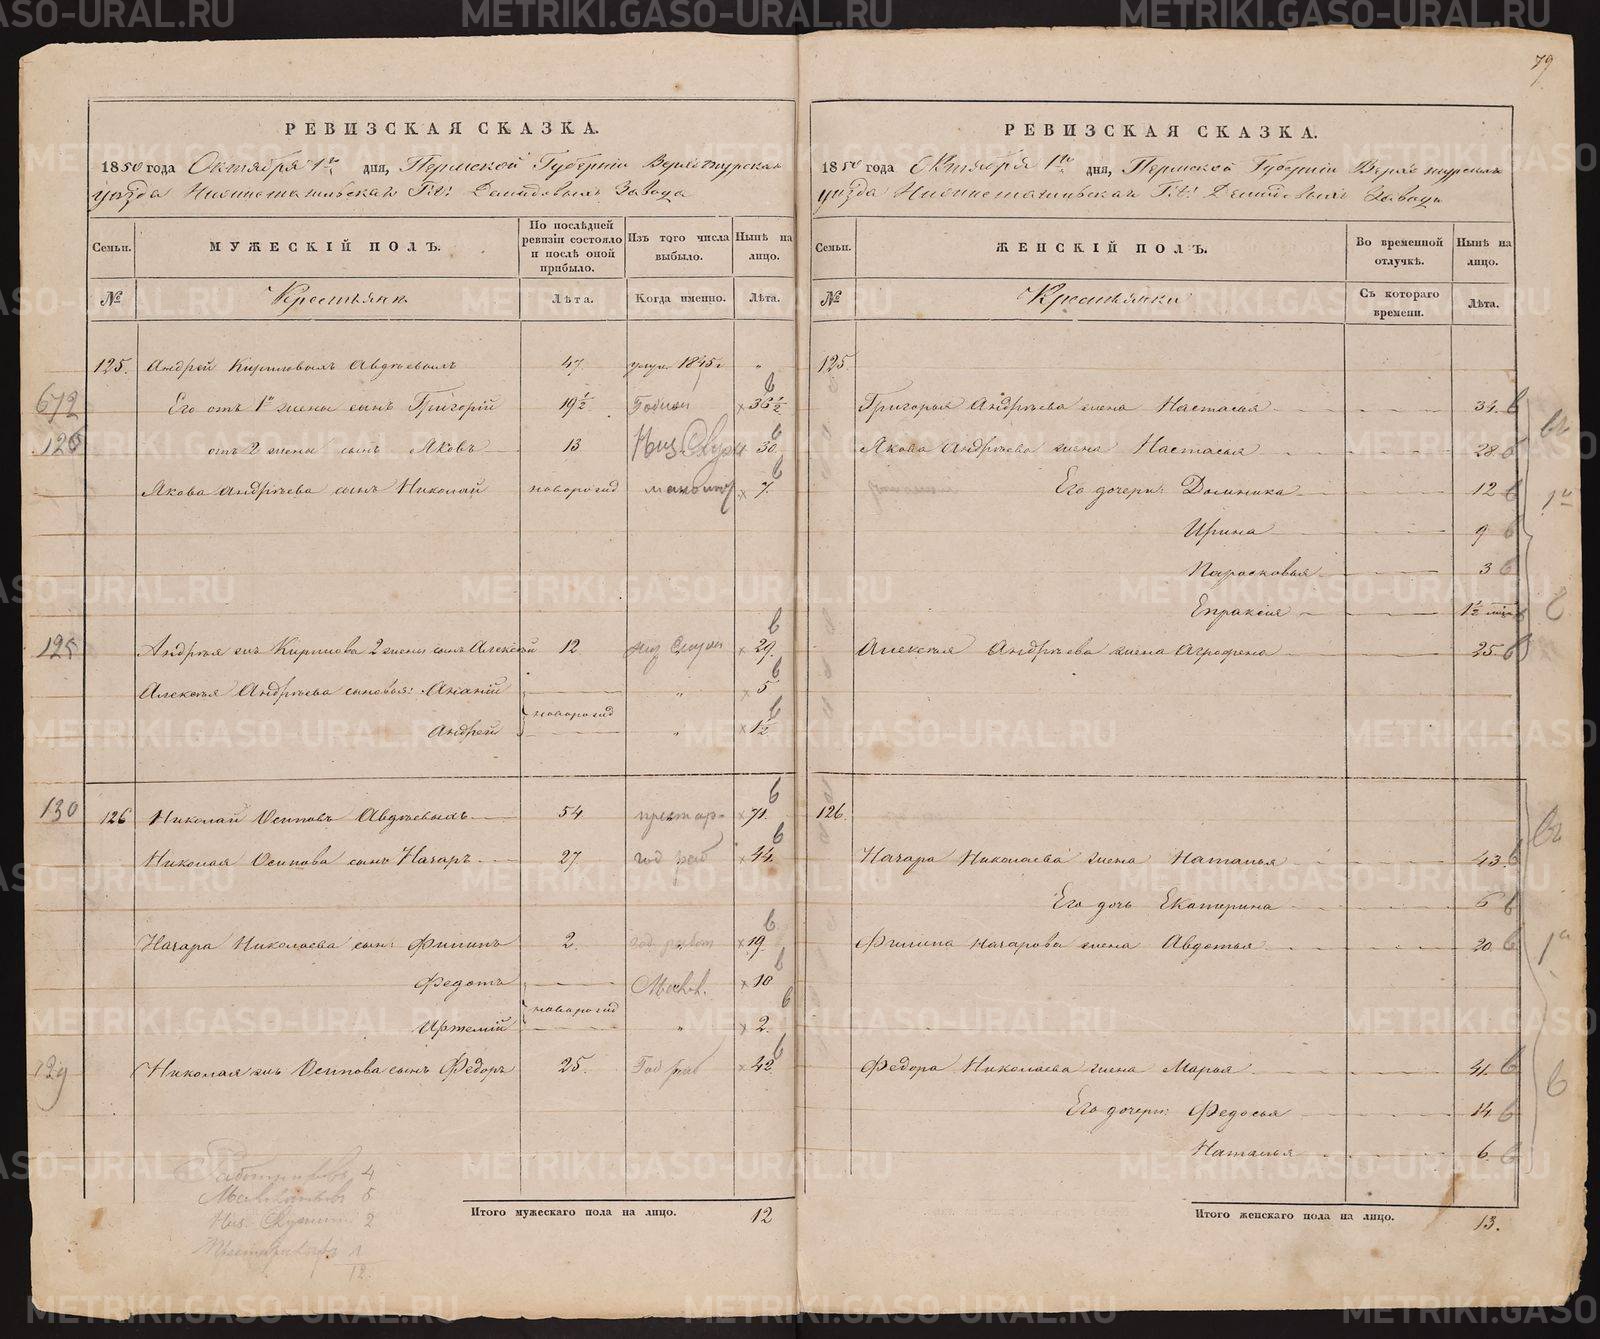 79
РЕВИЗСКАЯ СКАЗКА.
1850 года Октября 1го дня, Пермской Губернiи Верхотурскаго
уѣзда Нижнетагильскаго Г.г. Демидовыхъ Завода
Семьи.
МУЖЕСКIЙ ПОЛЪ.
По послѣдней ревизiи состояло и послѣ оной прибыло.
Изъ того числа выбыло.
Нынѣ на лицо.
№
Крестьянъ
Лѣта.
Когда именно.
Лѣта.
125. Андрей Кириловъ Авдѣевыхъ 47 умре 1845 г "
672 Его отъ 1й жены сынъ Григорiй 19½ × 36½
126 отъ 2 жены сынъ Яковъ 13 30
Якова Андрѣева сынъ Николай новорожд малолет × 7.
125 Андрѣя жъ Кирилова 2 жены сынъ Алексѣй 12 × 29.
Алексѣя Андрѣева сыновья: Ананiй " × 5
новорожд
Андрей " × 1½
130 126 Николай Осиповъ Авдѣевыхъ 54 престар. × 71.
Николая Осипова сынъ Назаръ 27 год раб × 44.
Назара Николаева сын: Филипъ 2. год работ × 19.
Федотъ Малол. × 10
новорожд
Артемiй " × 2.
129 Николая жъ Осипова сынъ Федоръ 25. Год раб × 42.
Работников 4
Малолетков 5
2
Престарелых 1
12.
Итого мужескаго пола на лицо. 12
РЕВИЗСКАЯ СКАЗКА.
1850 года Октября 1го дня, Пермской Губернiи Верхотурскаго
уѣзда Нижнетагильскаго Г.г. Демидовыхъ Завода
Семьи.
ЖЕНСКIЙ ПОЛЪ.
Во временной отлучкѣ.
Нынѣ на лицо.
№
Крестьянки
Съ котораго времени.
Лѣта.
125
Григорья Андрѣева жена Настасья 34.
Якова Андрѣева жена Настасья 28
Его дочери: Домника 12
Ирина 9
Парасковья 3
Евпраксiя 1½
Алексѣя Андрѣева жена Аграфена 25
126.
Назара Николаева жена Наталья 43.
Его дочь Екатерина 6
Филипа Назарова жена Авдотья 20
Федора Николаева жена Марья 41.
Его дочери: Федосья 14
Наталья 6.
Итого женскаго пола на лицо. 13.
METRIKI.GASO-URAL.RU